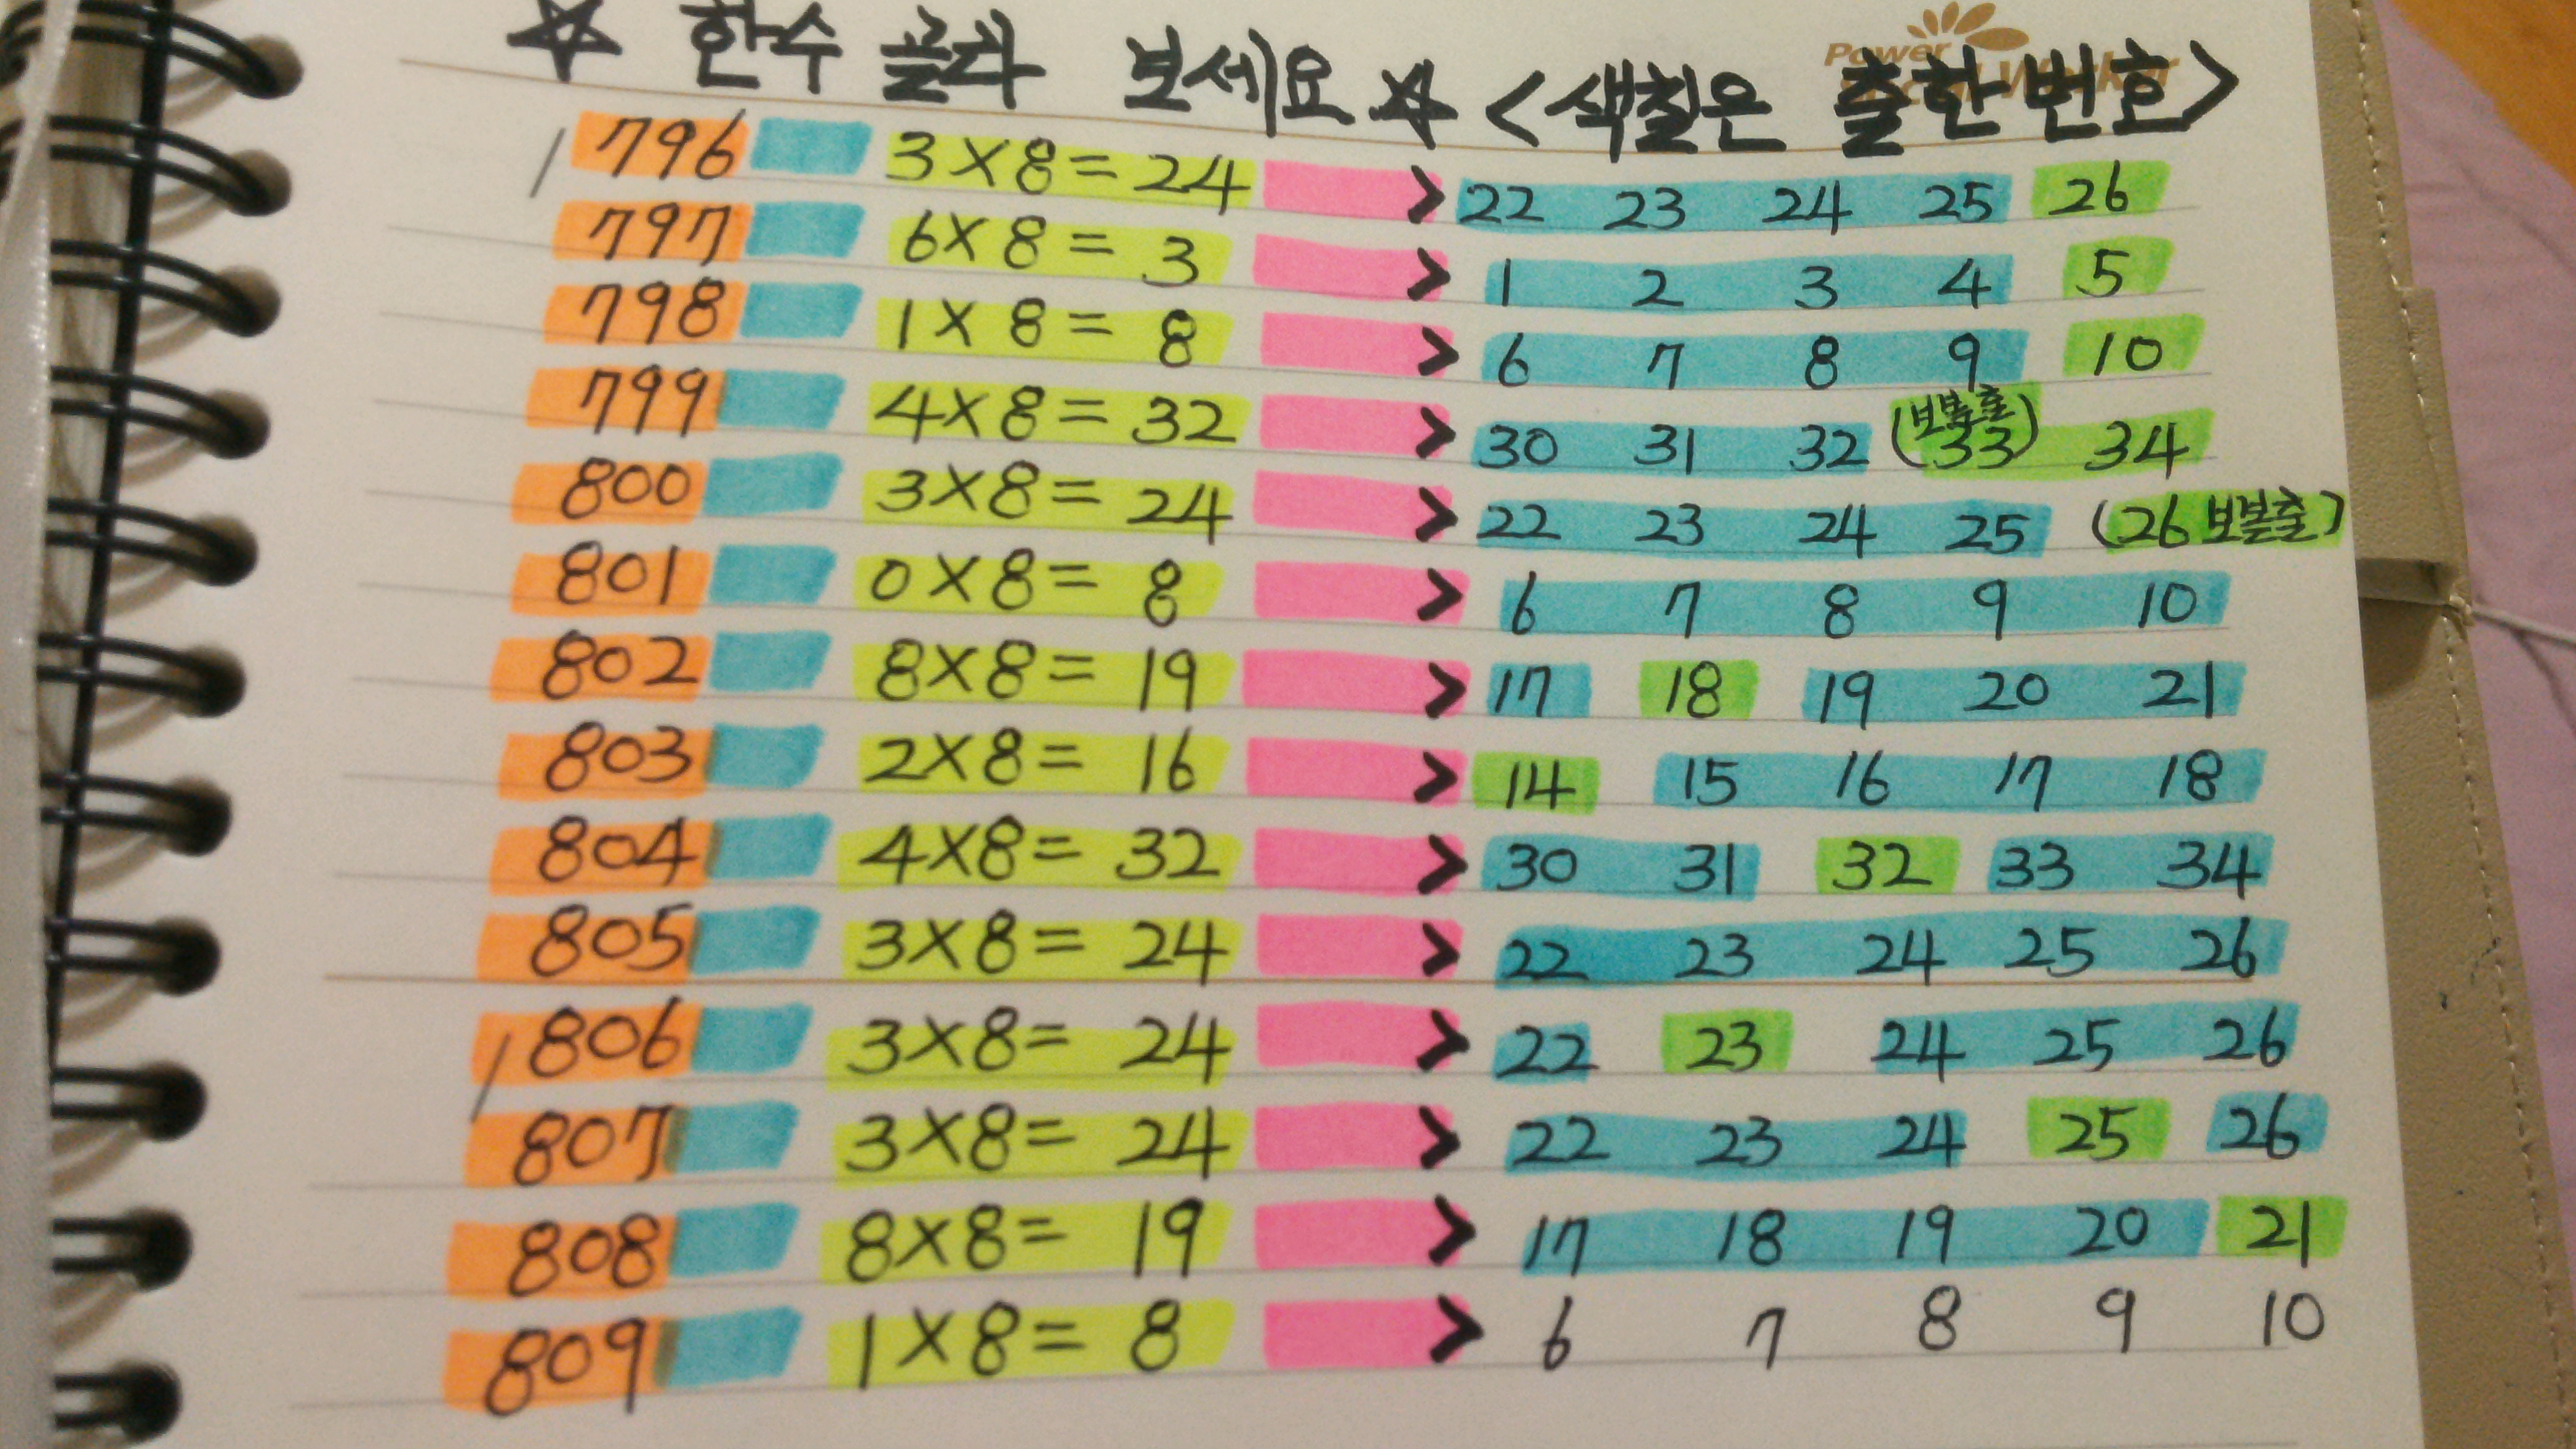 ☆ 한수 골라 보세요 ☆ <색칠은 출한번호>
Power
796 3×8=24 > 22 23 24 25 26
797 6×8=3 > 1 2 3 4 5
798 1×8=8 > 6 7 8 9 10
799 4×8=32 > 30 31 32 (보볼출 33) 34
800 3×8=24 > 22 23 24 25 (26 보볼출)
801 0×8=8 > 6 7 8 9 10
802 8×8=19 > 17 18 19 20 21
803 2×8=16 > 14 15 16 17 18
804 4×8=32 > 30 31 32 33 34
805 3×8=24 > 22 23 24 25 26
806 3×8=24 > 22 23 24 25 26
807 3×8=24 > 22 23 24 25 26
808 8×8=19 > 17 18 19 20 21
809 1×8=8 > 6 7 8 9 10